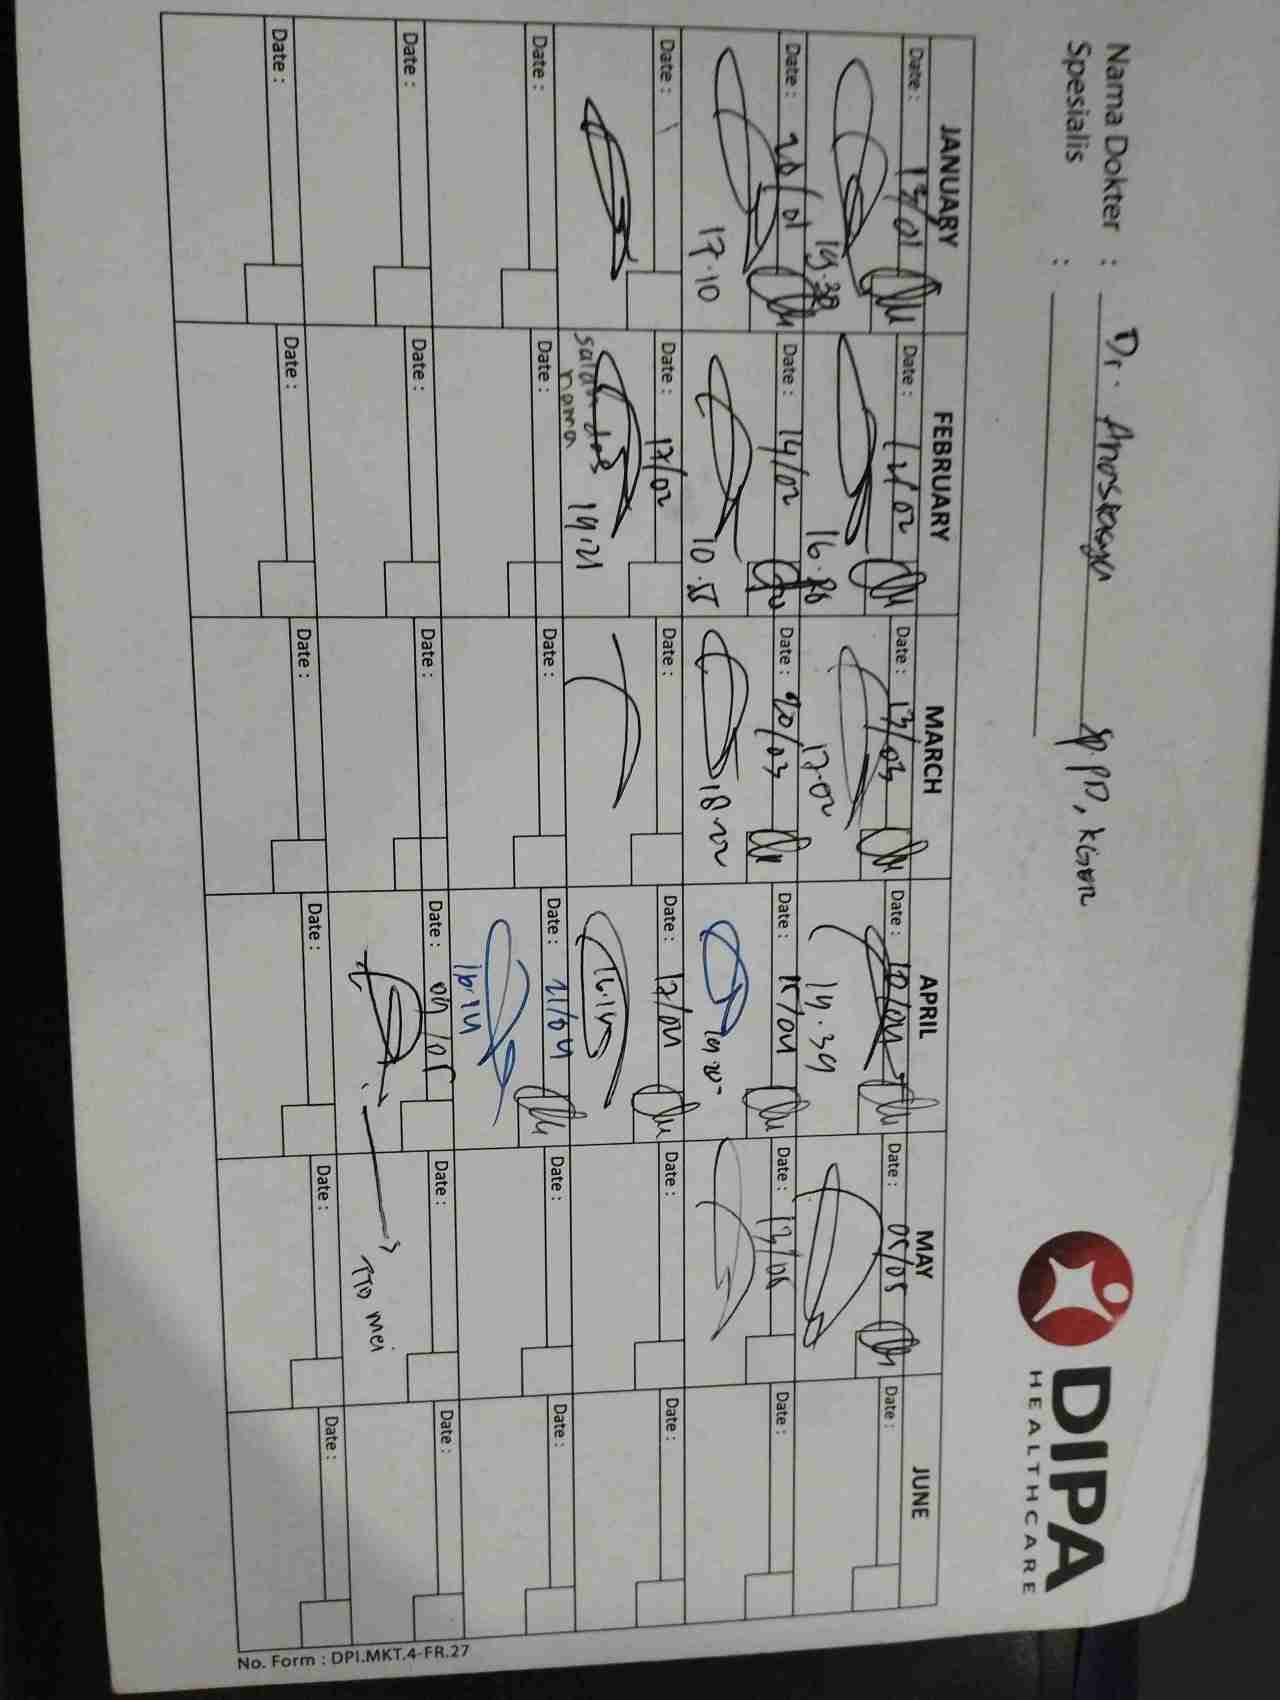 DIPA
HEALTHCARE
Nama Dokter : Dr.
Spesialis : Sp.PD, KGER
JANUARY FEBRUARY MARCH APRIL MAY JUNE
Date : 13/01 Date : 12/02 Date : 13/03 Date : 10/04 Date : 05/05 Date :
19.38 16. 17.02 19.39
Date : 20/01 Date : 14/02 Date : 20/03 Date : 15/04 Date : 13/05 Date :
17.10 10.55 18.22
Date : Date : 17/02 Date : Date : 17/04 Date : Date :
salah nama 19.21 16.14
Date : Date : Date : Date : 21/04 Date : Date :
16.14
Date : Date : Date : Date : 09/05 Date : Date :
TTD mei
Date : Date : Date : Date : Date : Date :
No. Form : DPI.MKT.4-FR.27